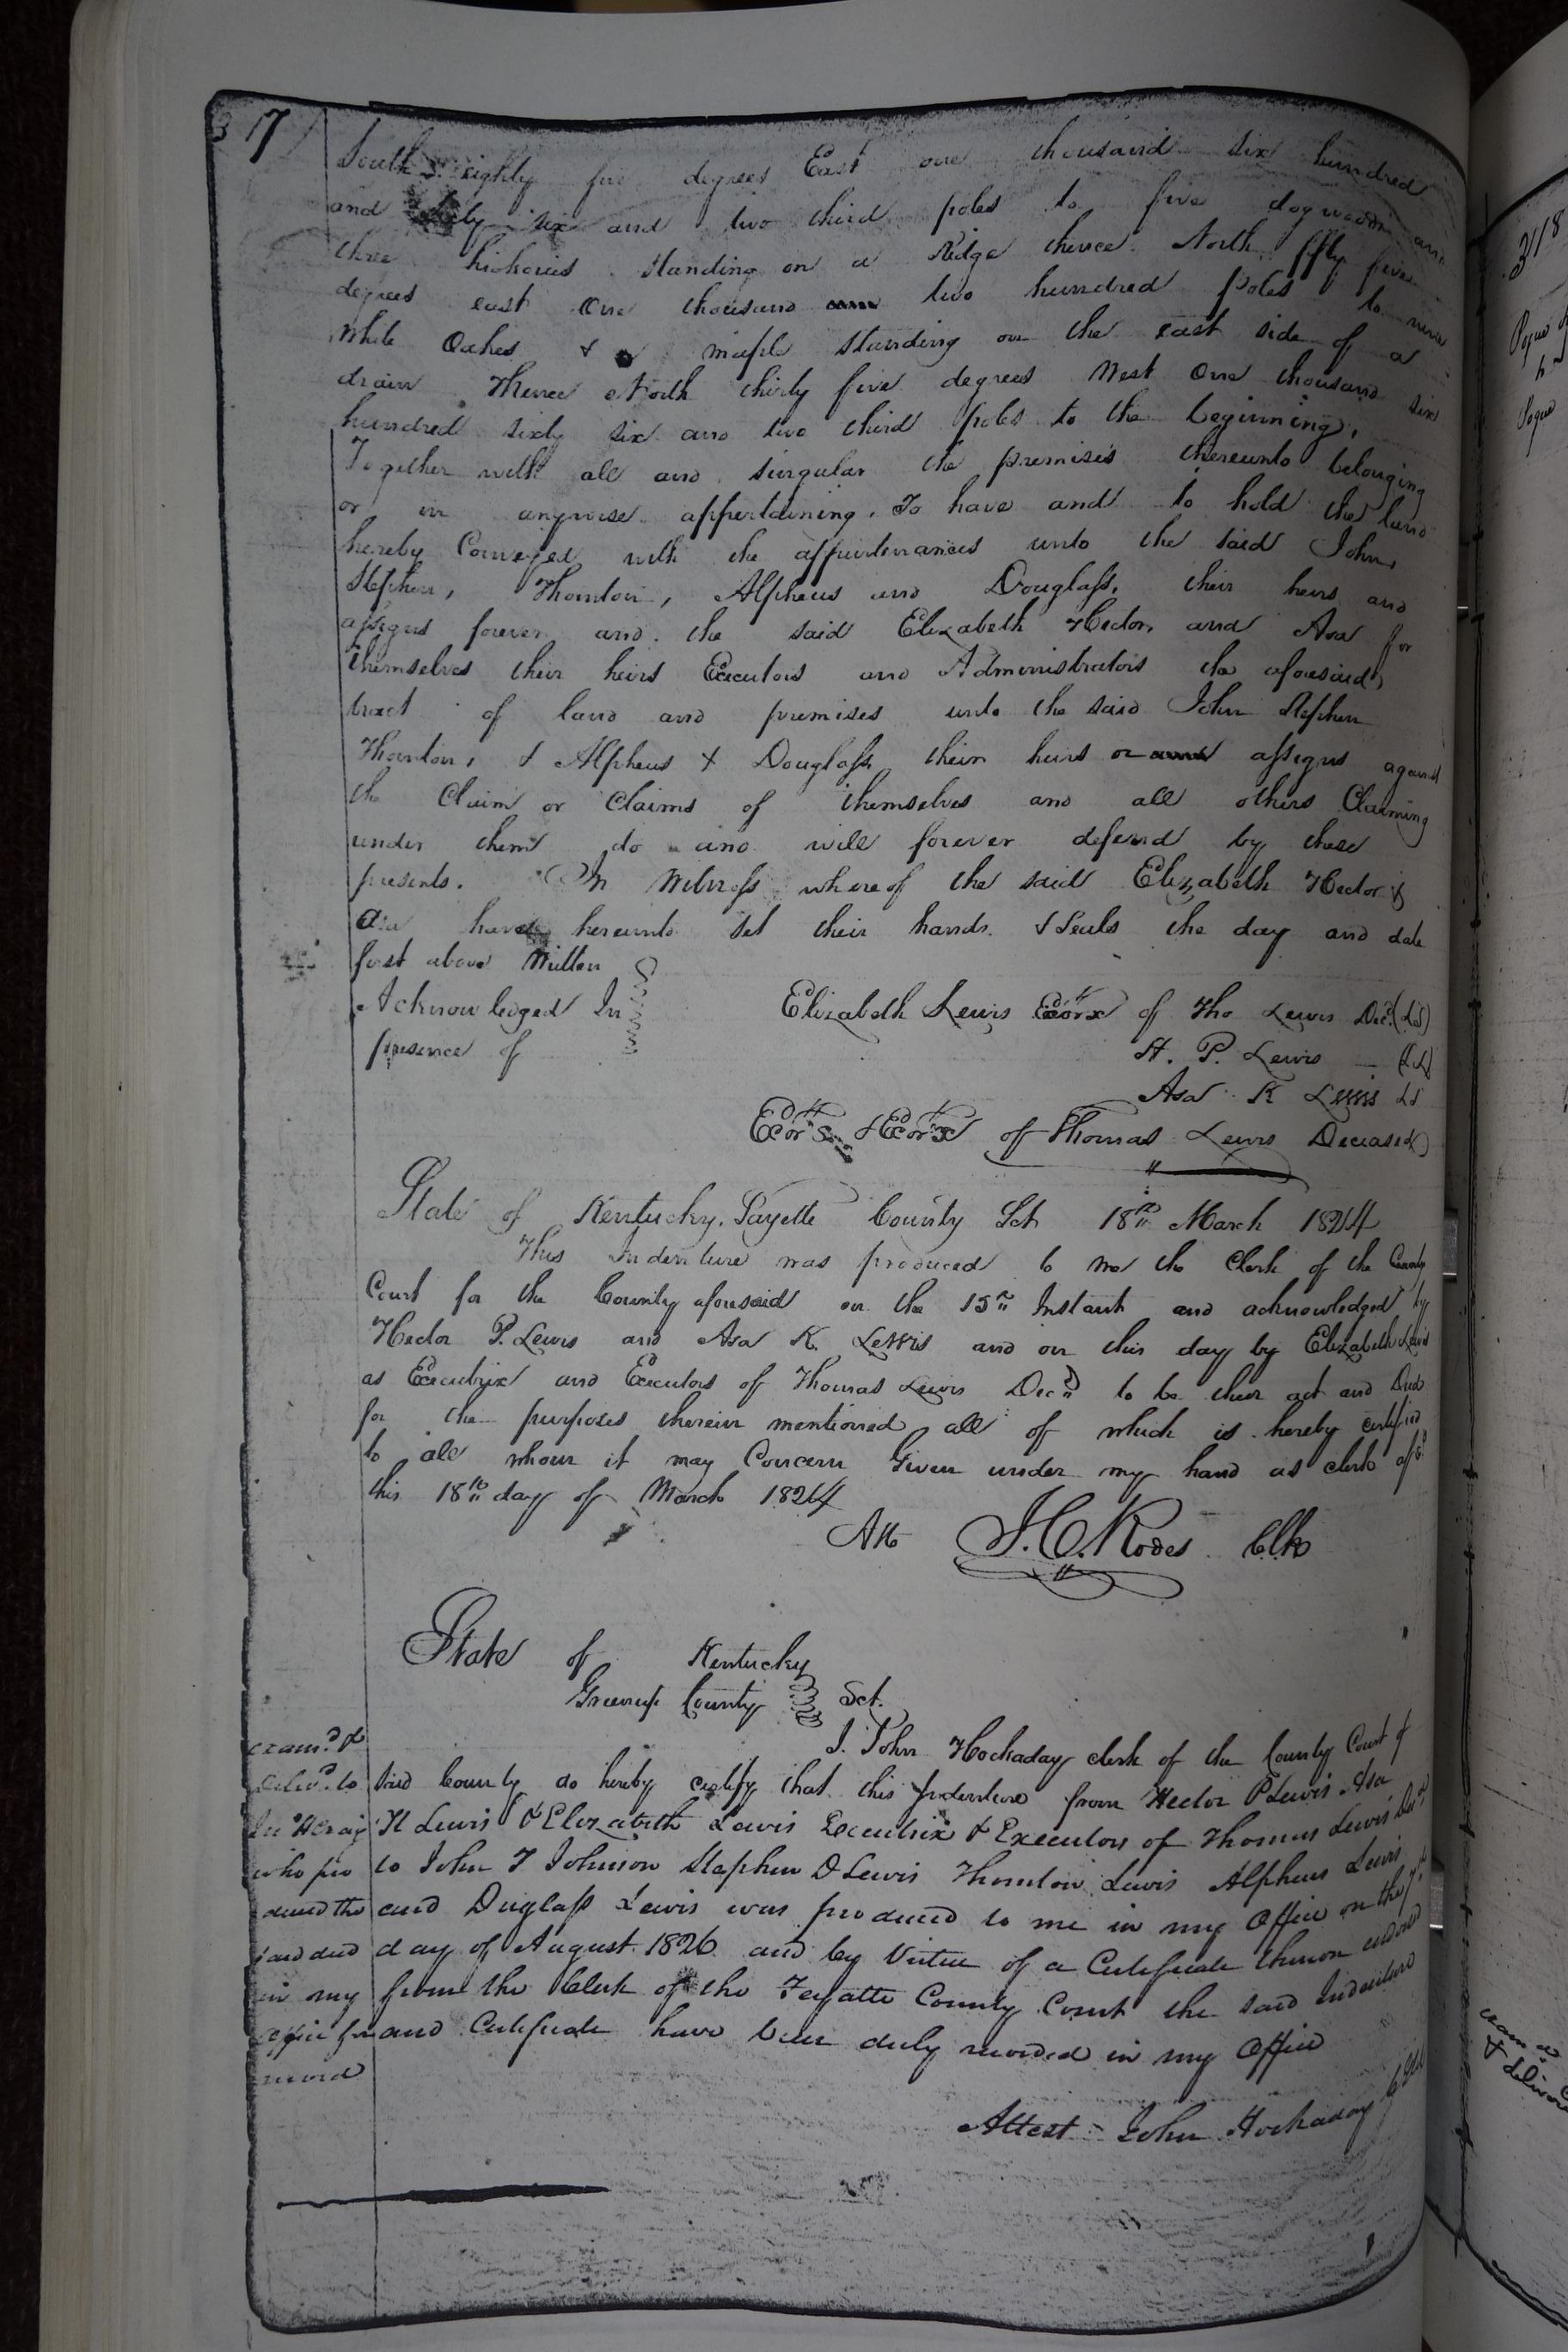 317
South eighty five degrees East one thousand six hundred
and six and two third poles to five dogwoods and
three hickories standing on a Ridge thence North fifty five
degrees east One thousand two hundred poles to nine
White Oakes & a maple standing on the east side of a
drain Thence North thirty five degrees West One thousand six
hundred sixty six and two third poles to the beginning,
Together with all and singular the premises thereunto belonging
or in anywise appertaining. To have and to hold the land
hereby Conveyed with the appurtenances unto the said John,
Stephen, Thornton, Alpheus and Douglass, their heirs and
assigns forever and the said Elizabeth Hector, and Asa for
themselves their heirs Executors and Administrators the aforesaid
tract of land and premises unto the said John Stephen
Thornton, & Alpheus & Douglass their heirs or assigns against
the Claim or Claims of themselves and all others Claiming
under them do and will forever defend by these
presents. In Witness whereof the said Elizabeth Hector &
Asa have hereunto set their hands & Seals the day and date
first above Written
Acknowledged In
presence of
Elizabeth Lewis Exorx of Tho Lewis Decd. (LS)
H. P. Lewis (LS)
Asa K Lewis LS
Exors & Exorx of Thomas Lewis Deceased
State of Kentucky, Fayette County Sct 18th March 1824
This Indenture was produced to me the Clerk of the County
Court for the County aforesaid on the 15th Instant and acknowledged by
Hector P. Lewis and Asa K. Lewis and on this day by Elizabeth Lewis
as Executrix and Executors of Thomas Lewis Decd to be their act and Deed
for the purposes therein mentioned all of which is hereby certified
to all whom it may Concern Given under my hand as clerk afsd
this 18th day of March 1824
Att J. C. Rodes Clk
State of Kentucky
Greenup County Sct.
I. John Hockaday clerk of the County Court of
said County do hereby certify that this Indenture from Hector P Lewis Asa
K Lewis & Elizabeth Lewis Executrix & Executors of Thomas Lewis Decd
to John T Johnson Stephen D Lewis Thornton Lewis Alpheus Lewis
and Duglass Lewis was produced to me in my Office on the 7th
day of August 1826 and by Virtue of a Certificate thereon endorsed
from the Clerk of the Fayatte County Court the said Indenture
and Certificate have been duly recorded in my Office
Attest John Hockaday Clk
examd &
delivd to
who pro
duced the
said deed
in my
office for
record
318
Pogue
Pogue
examd
& delivered